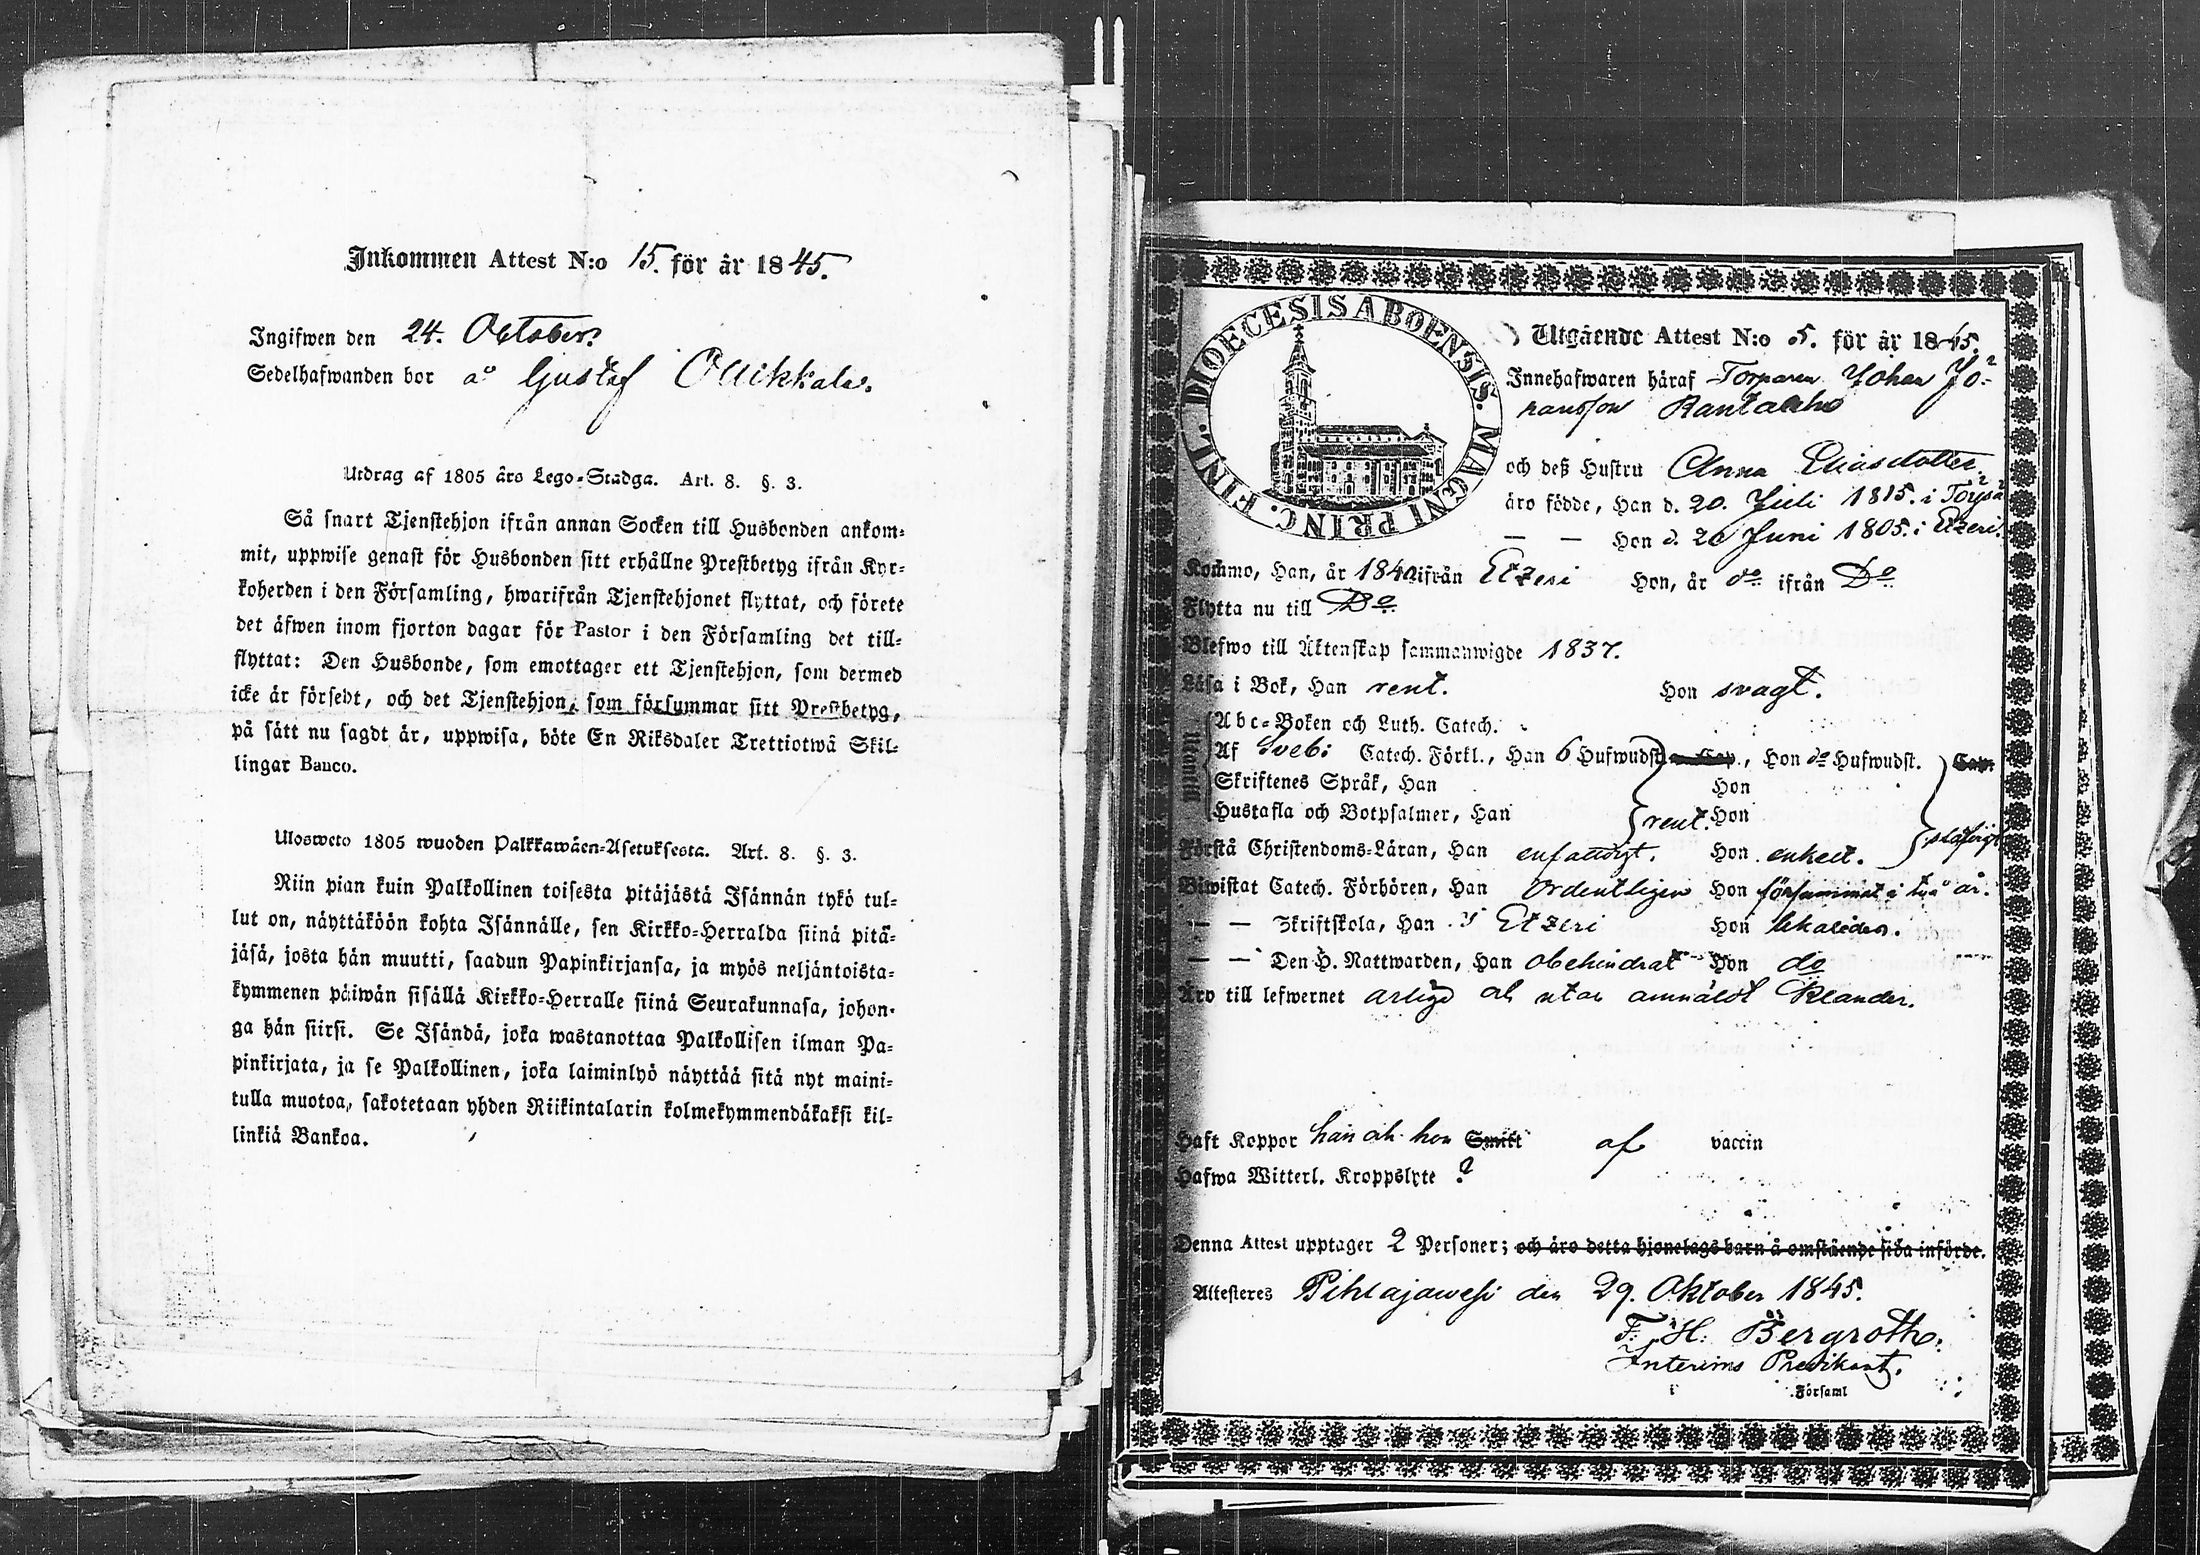 Inkommen Attest N:o 15. för år 1845.
Ingifwen den 24. October.
Sedelhafwanden bor å Gustaf Ollikkala.
Utdrag af 1805 års Lego-Stadga. Art. 8. §. 3.
Så snart Tjenstehjon ifrån annan Socken till Husbonden ankom-
mit, uppwise genast för Husbonden sitt erhållne Prestbetyg ifrån Kyr-
koherden i den Församling, hwarifrån Tjenstehjonet flyttat, och förete
det äfwen inom fjorton dagar för Pastor i den Församling det till-
flyttat: Den Husbonde, som emottager ett Tjenstehjon, som dermed
icke är försedt, och det Tjenstehjon, som försummar sitt Prestbetyg,
på sätt nu sagdt är, uppwisa, böte En Riksdaler Trettiotwå Skil-
lingar Banco.
Ulosweto 1805 wuoden Palkkawäen-Asetuksesta. Art. 8. §. 3.
Niin pian kuin Palkollinen toisesta pitäjästä Isännän tykö tul-
lut on, näyttäköön kohta Isännälle, sen Kirkko-Herralda siinä pitä-
jäsä, josta hän muutti, saadun Papinkirjansa, ja myös neljäntoista-
kymmenen päiwän sisällä Kirkko-Herralle siinä Seurakunnasa, johon-
ga hän siirsi. Se Isändä, joka wastanottaa Palkollisen ilman Pa-
pinkirjata, ja se Palkollinen, joka laiminlyö näyttää sitä nyt maini-
tulla muotoa, sakotetaan yhden Riikintalarin kolmekymmendäkaksi kil-
linkiä Bankoa.
DIOECESIS ABOENSIS. MAGNI PRINC. FINL.
Utgående Attest N:o 5. för år 1845.
Innehafwaren häraf Torparen Johan Jo-
hansson Rantaaho
och deß Hustru Anna Eliasdotter
äro födde, Han d. 20. Juli 1815. i
— — Hon d. 20 Juni 1805. i Etzeri.
Kommo, Han, år 1840 ifrån Etzeri Hon, år do ifrån Do
Flytta nu till Do
Blefwo till Äktenskap sammanwigde 1837.
Läsa i Bok, Han rent. Hon svagt.
Utantill
Abc-Boken och Luth. Catech.
Af Svebi Catech. Förkl., Han 6 Hufwudst. , Hon do Hufwudst. Cap.
Skriftenes Språk, Han Hon
Hustafla och Botpsalmer, Han rent. Hon
Förstå Christendoms-Läran, Han enfaldigt. Hon enkelt.
Biwistat Catech. Förhören, Han Ordentligen Hon försummat i två år.
— — Skriftskola, Han i Etzeri Hon likaledes.
— — Den H. Nattwarden, Han obehindrat Hon do
Äro till lefwernet arlige och utan anmäldt klander.
Haft Koppor han och hon Smitt af vaccin
Hafwa Witterl. Kroppslyte ?
Denna Attest upptager 2 Personer; och äro detta hjonelags barn å omstående sida införde.
Attesteres Pihlajawesi den 29. Oktober 1845.
F. H. Bergroth.
Interims Predikant.
i Församl